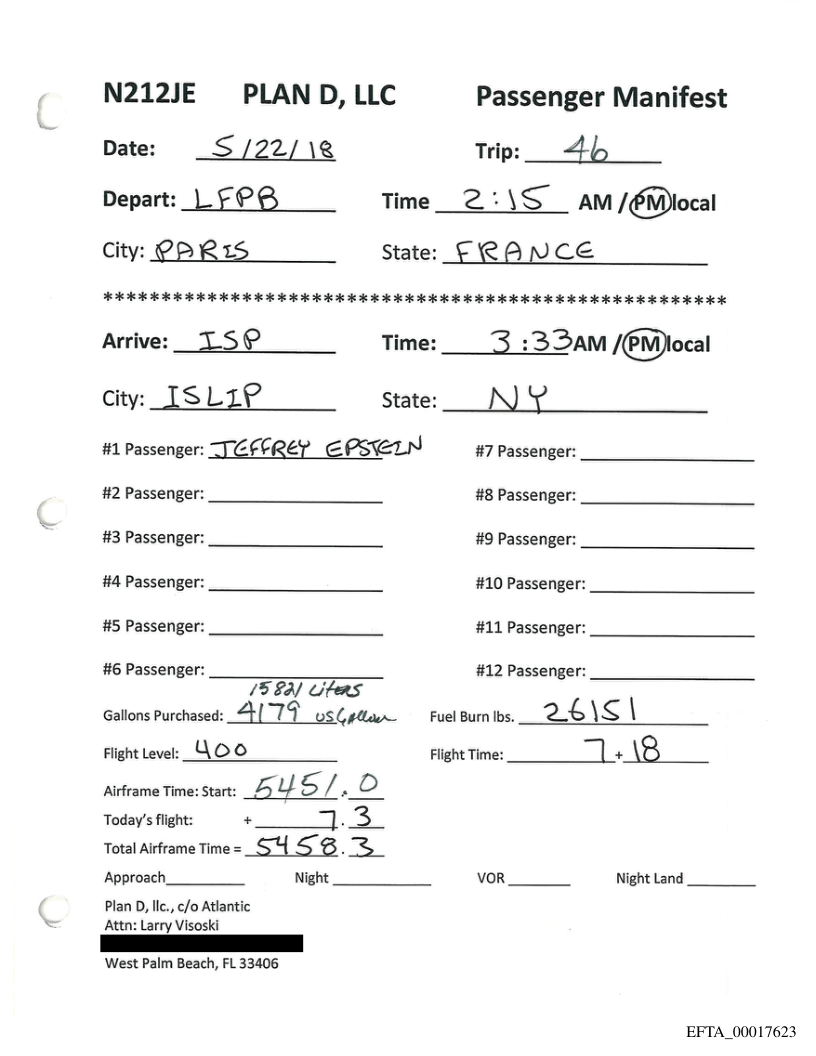 N212JE PLAN D, LLC Passenger Manifest
Date: 5/22/18 Trip: 46
Depart: LFPB Time 2:15 AM / PM local
City: PARIS State: FRANCE
******************************************************
Arrive: ISP Time: 3:33 AM / PM local
City: ISLIP State: NY
#1 Passenger: JEFFREY EPSTEIN #7 Passenger:
#2 Passenger: #8 Passenger:
#3 Passenger: #9 Passenger:
#4 Passenger: #10 Passenger:
#5 Passenger: #11 Passenger:
#6 Passenger: #12 Passenger:
15821 Liters
Gallons Purchased: 4179 US Gallon Fuel Burn lbs. 26151
Flight Level: 400 Flight Time: 7 + 18
Airframe Time: Start: 5451.0
Today's flight: + 7.3
Total Airframe Time = 5458.3
Approach Night VOR Night Land
Plan D, llc., c/o Atlantic
Attn: Larry Visoski
West Palm Beach, FL 33406
EFTA_00017623